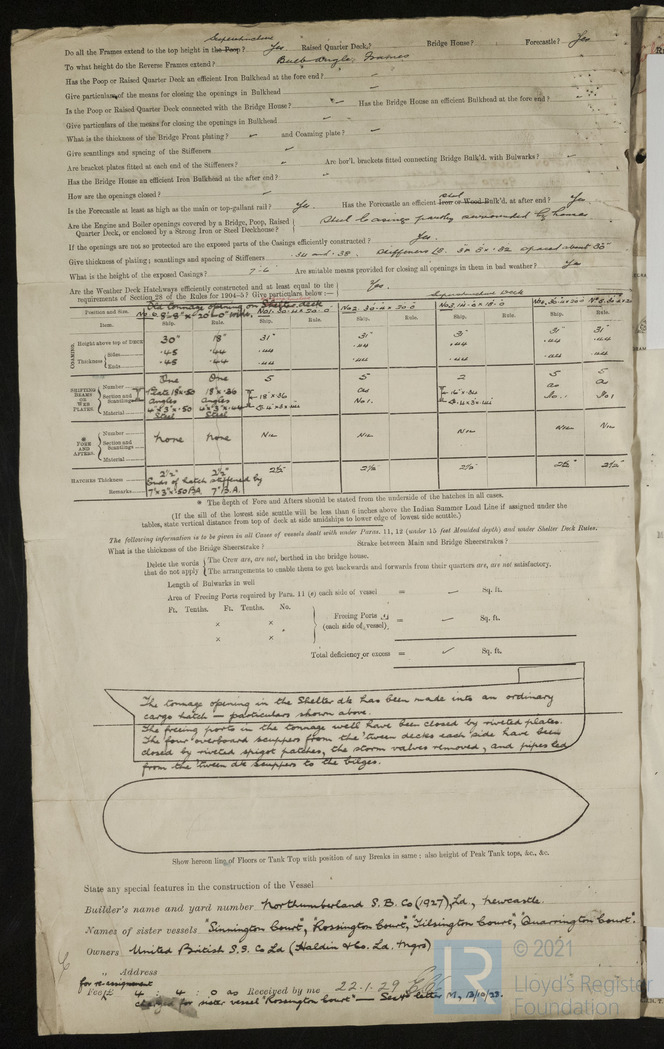 Superstructure
Do all the Frames extend to the top height in the Poop? Yes Raised Quarter Deck,? Bridge House? Forecastle? Yes
To what height do the Reverse Frames extend? Bulb Angle Frames
Has the Poop or Raised Quarter Deck an efficient Iron Bulkhead at the fore end?
Give particulars of the means for closing the openings in Bulkhead
Is the Poop or Raised Quarter Deck connected with the Bridge House? Has the Bridge House an efficient Bulkhead at the fore end?
Give particulars of the means for closing the openings in Bulkhead
What is the thickness of the Bridge Front plating? and Coaming plate?
Give scantlings and spacing of the Stiffeners
Are bracket plates fitted at each end of the Stiffeners? Are hor'l. brackets fitted connecting Bridge Bulk'd. with Bulwarks?
Has the Bridge House an efficient Iron Bulkhead at the after end?
How are the openings closed?
Is the Forecastle at least as high as the main or top-gallant rail? Yes. Has the Forecastle an efficient steel Iron or Wood Bulk'd. at after end? Yes
Are the Engine and Boiler openings covered by a Bridge, Poop, Raised Quarter Deck, or enclosed by a Strong Iron or Steel Deckhouse? Steel Casings partly surrounded by houses
If the openings are not so protected are the exposed parts of the Casings efficiently constructed? Yes.
Give thickness of plating; scantlings and spacing of Stiffeners .34 and .38. Stiffeners spaced about 30"
What is the height of the exposed Casings? 7'-6" Are suitable means provided for closing all openings in them in bad weather? Yes
Are the Weather Deck Hatchways efficiently constructed and at least equal to the requirements of Section 28 of the Rules for 1904-5? Give particulars below:— Yes.
Old tonnage opening on Shelter deck
Superstructure Deck
Position and Size. No. 1. 30.4 x 20.0 No 2. 30.4 x 20.0 No 3. 14.0 x 18.0
Item. Ship. Rule. Ship. Rule. Ship. Rule. Ship. Rule. Ship. Ship.
COAMING. Height above top of DECK 30" 18" 31" 31" 31" 31" 31"
Thickness Sides .45 .44 .44 .44 .44 .44 .44
Ends .45 .44 .44 .44 .44 .44 .44
SHIFTING BEAMS OR WEB PLATES. Number One One 5 5 2 5 5
Section and Scantlings Plate 18 x .50 18" x .36 18" x .36 as No 1. as as
angles angles
4" x 3" x .50 4" x 3" x .44
Material Steel Steel
* FORE AND AFTERS. Number None None Nil Nil Nil Nil Nil
Section and Scantlings
Material
HATCHES Thickness 2½" 2½" 2½" 2½" 2½" 2½" 2½"
Remarks Ends of hatch stiffened by
7" x 3" x .50 B.A. 7" B.A.
* The depth of Fore and Afters should be stated from the underside of the hatches in all cases.
(If the sill of the lowest side scuttle will be less than 6 inches above the Indian Summer Load Line if assigned under the
tables, state vertical distance from top of deck at side amidships to lower edge of lowest side scuttle.)
The following information is to be given in all Cases of vessels dealt with under Paras. 11, 12 (under 15 feet Moulded depth) and under Shelter Deck Rules.
What is the thickness of the Bridge Sheerstrake? Strake between Main and Bridge Sheerstrakes?
Delete the words that do not apply The Crew are, are not, berthed in the bridge house.
The arrangements to enable them to get backwards and forwards from their quarters are, are not satisfactory.
Length of Bulwarks in well
Area of Freeing Ports required by Para. 11 (e) each side of vessel = Sq. ft.
Ft. Tenths. Ft. Tenths. No.
× × Freeing Ports (each side of vessel) = Sq. ft.
× ×
Total deficiency or excess = Sq. ft.
The tonnage opening in the Shelter dk has been made into an ordinary
cargo hatch — particulars shown above.
The freeing ports in the tonnage well have been closed by riveted plates.
The four overboard scuppers from the 'tween decks each side have been
closed by riveted spigot patches, the storm valves removed, and pipes led
from the 'tween dk scuppers to the bilges.
Show hereon line of Floors or Tank Top with position of any Breaks in same: also height of Peak Tank tops, &c., &c.
State any special features in the construction of the Vessel
Builder's name and yard number Northumberland S. B. Co (1927), Ld, Newcastle.
Names of sister vessels "Sinnington Court", "Rossington Court", "Tilsington Court", "Quarrington Court".
Owners United British S.S. Co Ld (Haldin & Co. Ld. Mgrs)
" Address
for re-assignment
Fee £ 4 : 4 : 0 as Received by me 22.1.29
charged for sister vessel "Rossington Court" — See letter M, 13/10/28.
© 2021
LR
Lloyd's Register
Foundation